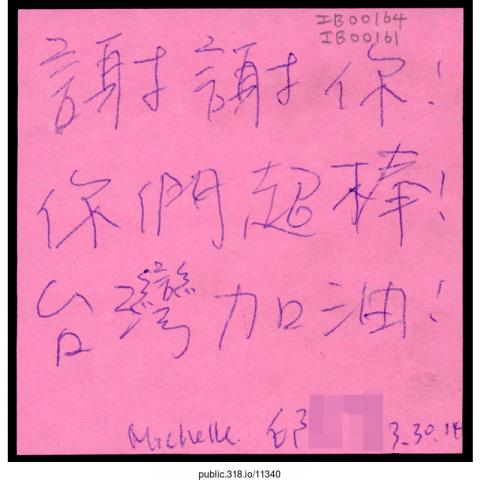 IB00164
IB00161
謝謝你!
你們超棒!
台灣加油!
Michelle. 3.30.14
public.318.io/11340